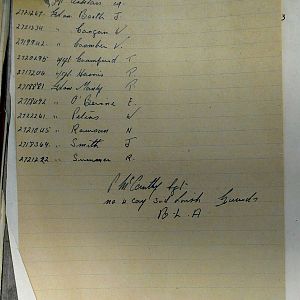 2721267 Gdsn Booth J
2721334 " Coogan W
2719942 " Coomber V.
2720295 L/Sgt Crawford T
2717206 L/Sgt Harris R
2718881 Gdsn Hardy R
2718692 " O'Beirne E.
2722261 " Peters W
2721045 " Rawson N
2718364 " Smith J
2721292 " Summer R.
P McCarthy Sgt
No 4 Coy 3rd Irish Guards
B.L.A